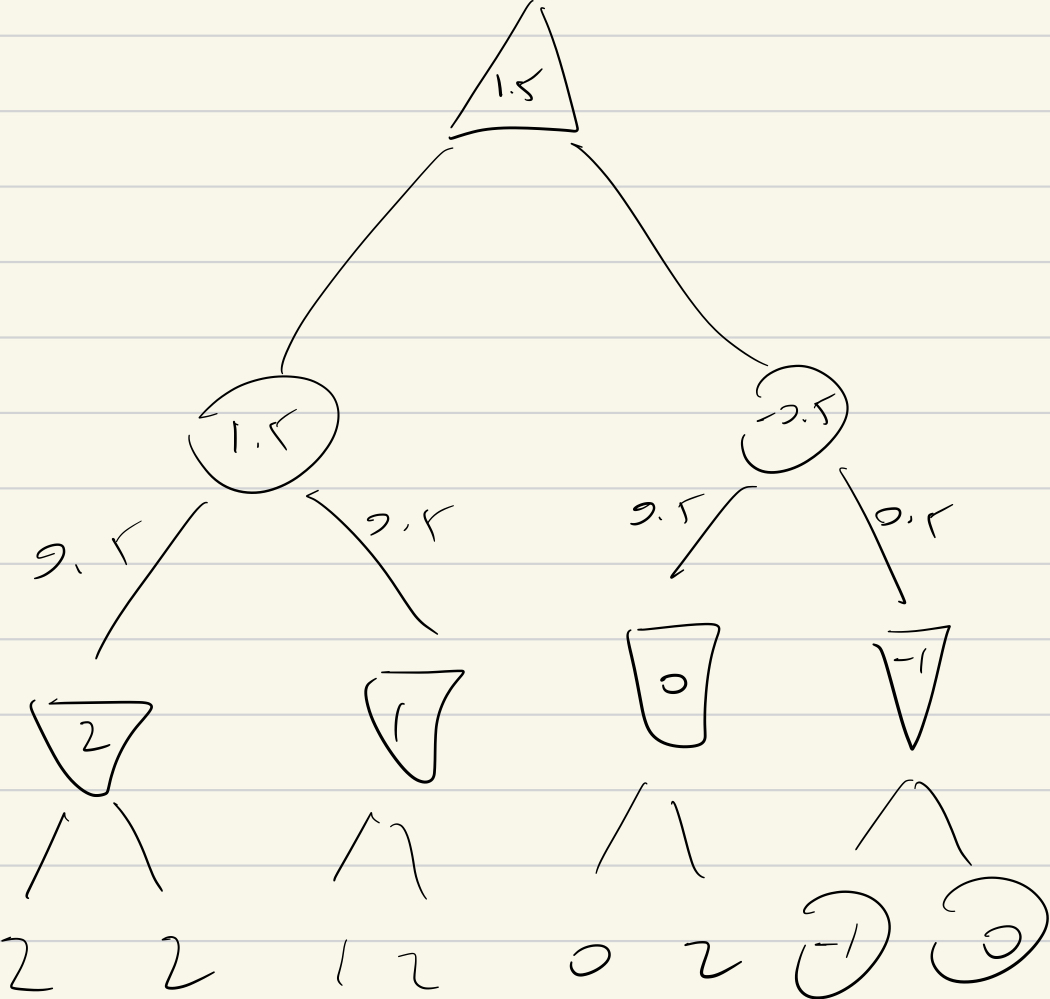 1.5
1.5 -0.5
0.5 0.5 0.5 0.5
2 1 0 -1
2 2 1 2 0 2 -1 0